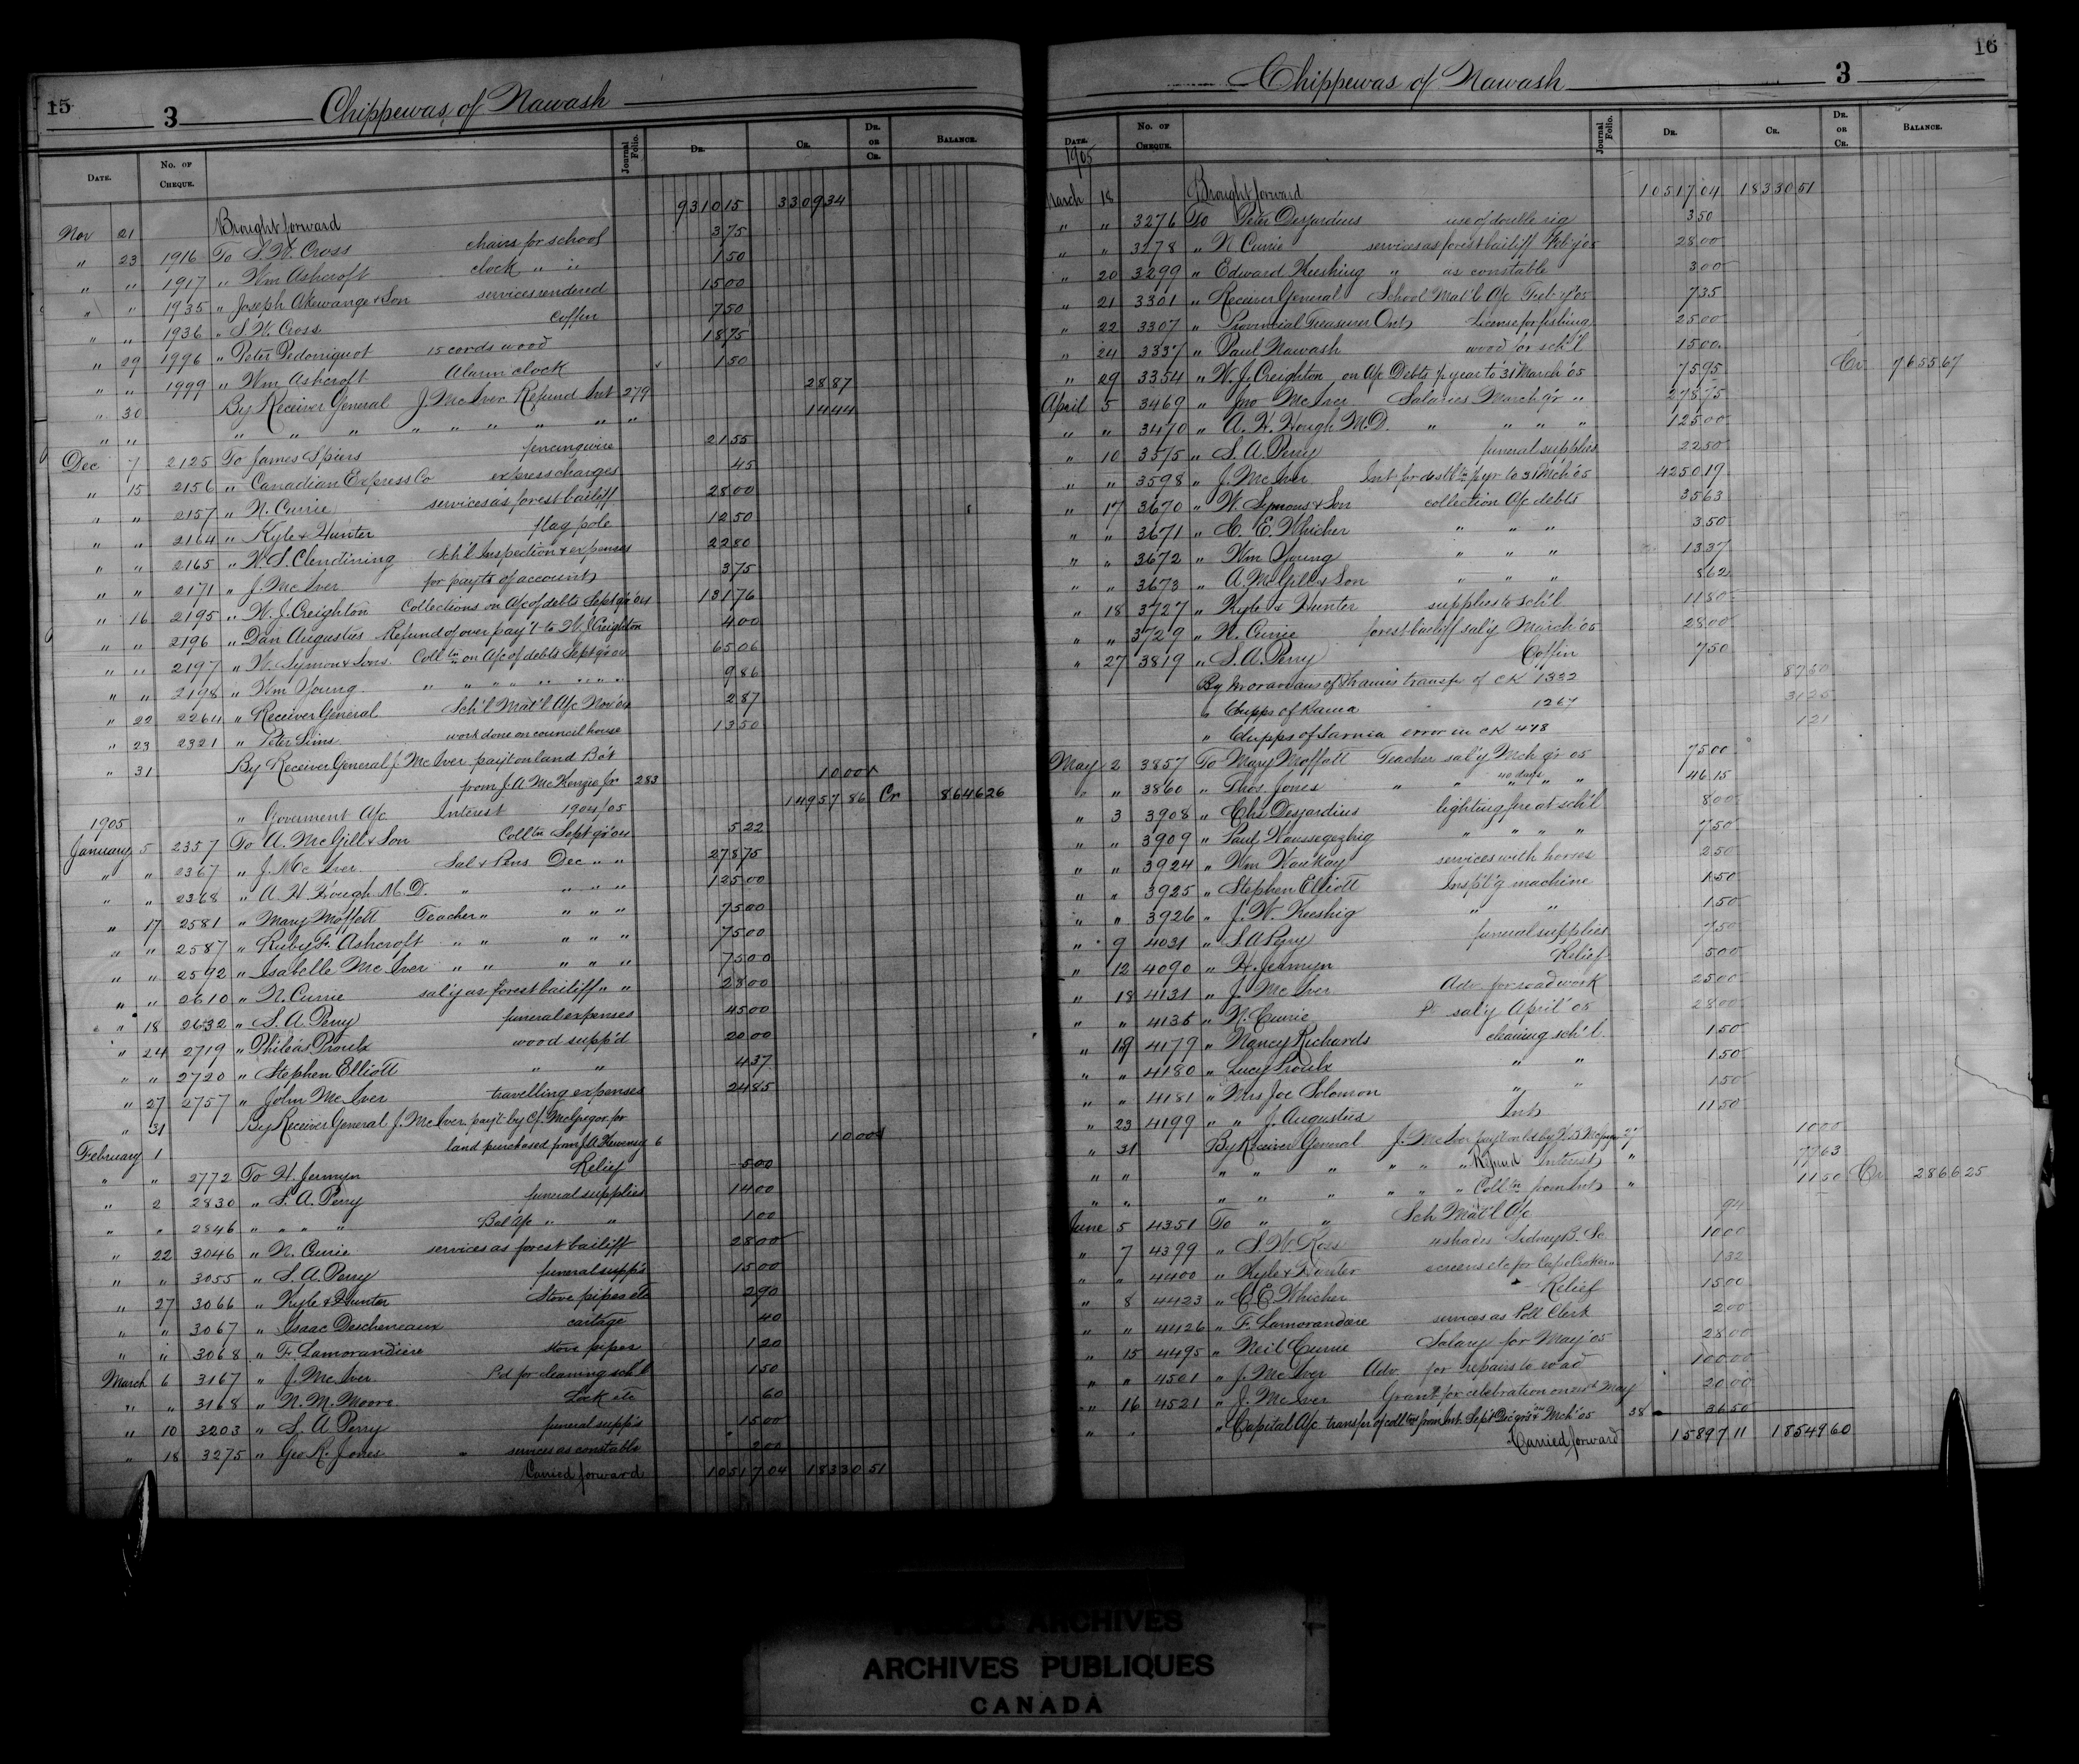 15
3 Chippewas of Nawash
Date. No. of Cheque. Journal Folio. Dr. Cr. Dr. or Cr. Balance.
Nov 21 Brought forward 9310 15 3309 34
" 23 1916 To S. W. Cross chairs for school 3 75
" " 1917 " Wm Ashcroft clock " " 1 50
" " 1935 " Joseph Akewange & Son services rendered 15 00
" " 1936 " S. W. Cross coffin 7 50
" 29 1996 " Peter Pedoniquot 15 cords wood 18 75
" " 1999 " Wm Ashcroft Alarm clock 1 50
" 30 By Receiver General J. McIver Refund Int 279 28 87
" " " " " " " " " " " 14 44
Dec 7 2125 To James Spiers fencing wire 21 55
" 15 2156 " Canadian Express Co express charges 45
" " 2157 " N. Currie services as forest bailiff 28 00
" " 2164 " Kyle & Hunter flag pole 12 50
" " 2165 " W. S. Clendining Sch'l Inspection & expenses 22 80
" " 2171 " J. McIver for payts of accounts 3 75
" 16 2195 " W. J. Creighton Collections on A/c of debts Sept qr 04 131 76
" " 2196 " Dan Augustus Refund of over pay't to W J Creighton 4 00
" " 2197 " W. Symon & Sons. Colltn on A/c of debts Sept qr 04 65 06
" " 2198 " Wm Young " " " " " " " " 9 86
" 22 2264 " Receiver General Sch'l Mat'l A/c Nov 04 2 87
" 23 2321 " Peter Sims work done on council house 13 50
" 31 By Receiver General J. McIver payt on land Bo't
from J. A. McKenzie Jr 283 10 00
1905 " Goverment A/c Interest 1904/05 14957 86 Cr 8646 26
January 5 2357 To A. McGill & Son Colltn Sept qr 04 5 22
" " 2367 " J. McIver Sal & Pens Dec " " 278 75
" " 2368 " A. H. Hough M. D. " " " " 125 00
" 17 2581 " Mary Moffett Teacher " " " " 75 00
" " 2587 " Ruby F. Ashcroft " " " " " 75 00
" " 2592 " Isabelle McIver " " " " " 75 00
" " 2610 " N. Currie sal'y as forest bailiff " " 28 00
" 18 2632 " S. A. Perry funeral expenses 45 00
" 24 2719 " Phileas Proulx wood supp'd 20 00
" " 2720 " Stephen Elliott " " 4 37
" 27 2757 " John McIver travelling expenses 24 85
" 31 By Receiver General J. McIver pay't by C. J. McGregor for
February 1 land purchased from J. A. 6 10 00
" " 2772 To H. Jermyn Relief 5 00
" 2 2830 " S. A. Perry funeral supplies 14 00
" " 2846 " " " " Bal A/c " " 1 00
" 22 3046 " N. Currie services as forest bailiff 28 00
" " 3055 " S. A. Perry funeral supp's 15 00
" 27 3066 " Kyle & Hunter Stove pipes etc 2 90
" " 3067 " Isaac Descheneaux cartage 40
" " 3068 " F. Lamorandiere stove pipes 1 20
March 6 3167 " J. McIver Pd for cleaning sch'l 1 50
" " 3168 " N. M. Moore Lock etc 60
" 10 3203 " S. A. Perry funeral supp's 15 00
" 18 3275 " Geo R. Jones services as constable 2 00
Carried forward 10517 04 18330 51
16
Chippewas of Nawash 3
Date. No. of Cheque. Journal Folio. Dr. Cr. Dr. or Cr. Balance.
1905
March 18 Brought forward 10517 04 18330 51
" " 3276 To Peter Desjardins use of double rig 3 50
" " 3278 " N. Currie services as forest bailiff Feb'y 05 28 00
" 20 3299 " Edward Keeshig " as constable 3 00
" 21 3301 " Receiver General School Mat'l A/c Feb'y 05 7 35
" 22 3307 " Provincial Treasurer Ont License for fishing 25 00
" 24 3337 " Paul Nawash wood for sch'l 15 00
" 29 3354 " W. J. Creighton on A/c Debts p year to 31 March '05 75 95 Cr 7655 67
April 5 3469 " Jno McIver Salaries March qr " 278 75
" " 3470 " A. H. Hough M. D. " " " " 125 00
" 10 3575 " S. A. Perry funeral supplies 22 50
" " 3598 " J. McIver Int for distbtn p yr to 31 Mch '05 4250 19
" 17 3670 " W. Symons & Son collection A/c debts 35 63
" " 3671 " C. E. Whicher " " " 3 50
" " 3672 " Wm Young " " " 13 37
" " 3673 " A. McGill & Son " " " 8 62
" 18 3727 " Kyle & Hunter supplies to sch'l 11 80
" " 3729 " N. Currie forest bailiff sal'y March '05 28 00
" 27 3819 " S. A. Perry Coffin 7 50
By Moravians of Thames transfer of CK 1332 87 60
" Chipps of Rama " 1267 31 25
" Chipps of Sarnia error in CK 478 1 21
May 2 3857 To Mary Moffatt Teacher sal'y Mch qr 05 75 00
" " 3860 " Thos. Jones " " 40 days " " 46 15
" 3 3908 " Chs Desjardins lighting fire at sch'l 8 00
" " 3909 " Paul Waussegezhig " " " " 7 50
" " 3924 " Wm Waukay services with horses 2 50
" " 3925 " Stephen Elliott Insp't'g machine 1 50
" " 3926 " J. W. Keeshig " " 1 50
" 9 4031 " S. A. Perry funeral supplies 7 50
" 12 4090 " H. Jermyn Relief 5 00
" 18 4131 " J. McIver Adv. for road work 25 00
" " 4135 " N. Currie sal'y April '05 28 00
" 19 4179 " Nancy Richards cleaning sch'l 1 50
" " 4180 " Lucy Proulx " " 1 50
" " 4181 " Mrs Joe Solomon " " 1 50
" 23 4199 " " J. Augustus Int 11 50
" 31 By Receiver General J. McIver pay't on ld by 27 10 00
" " " " " " " " Refund Interest " 77 63
" " " " " " " " Colltn from Int " 11 50 Cr 2866 25
June 5 4351 To " " Sch Mat'l A/c 94
" 7 4399 " S. W. Ross 4 shades Sidney B. Sc 10 00
" " 4400 " Kyle & Hunter screens etc for Cape Croker 1 32
" 8 4423 " C. E. Whicher Relief 15 00
" " 4426 " F. Lamorandiere services as Poll Clerk 2 00
" 15 4495 " Neil Currie Salary for May '05 28 00
" " 4501 " J. McIver Adv. for repairs to road 100 00
" 16 4521 " J. McIver Grant for celebration on 24th May 20 00
" " " Capital A/c transfer of colltns from Int. Sept Dec qrs 04 & Mch '05 38 36 50
Carried forward 15897 11 18549 60
PUBLIC ARCHIVES
ARCHIVES PUBLIQUES
CANADA